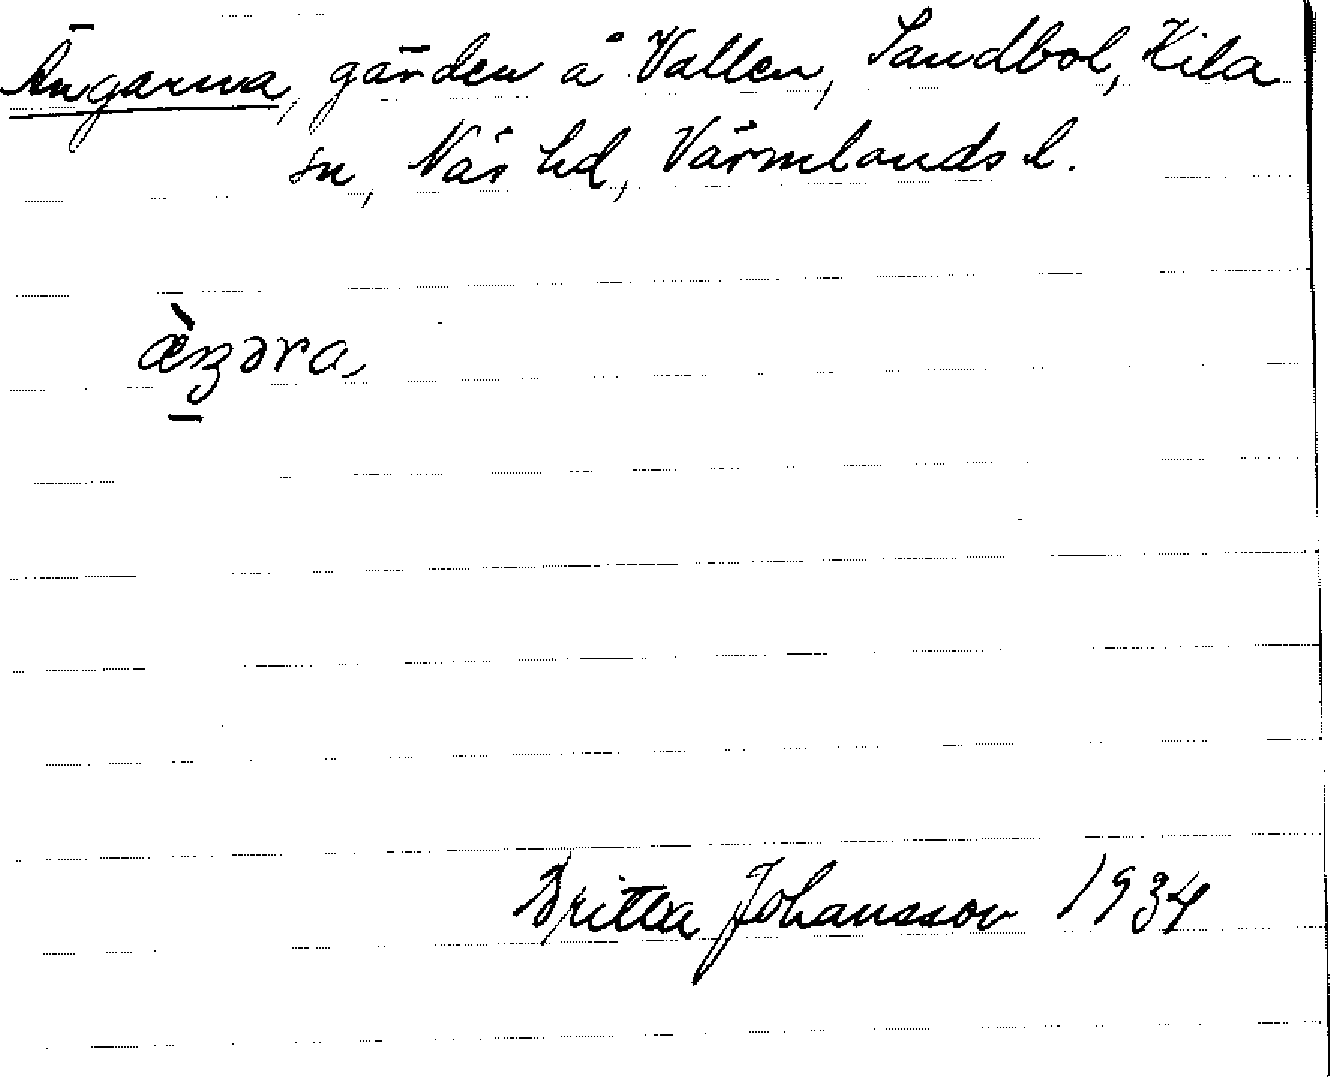 Ängarna, gärden å Vallen, Sandbol, Kila
sn, Näs hd, Värmlands l.
æ̀ŋəra,
Britta Johansson 1934